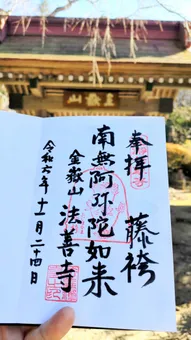 山嶽金
奉拝
藤袴
南無阿弥陀如来
金嶽山 法善寺
令和六年 十一月二十四日